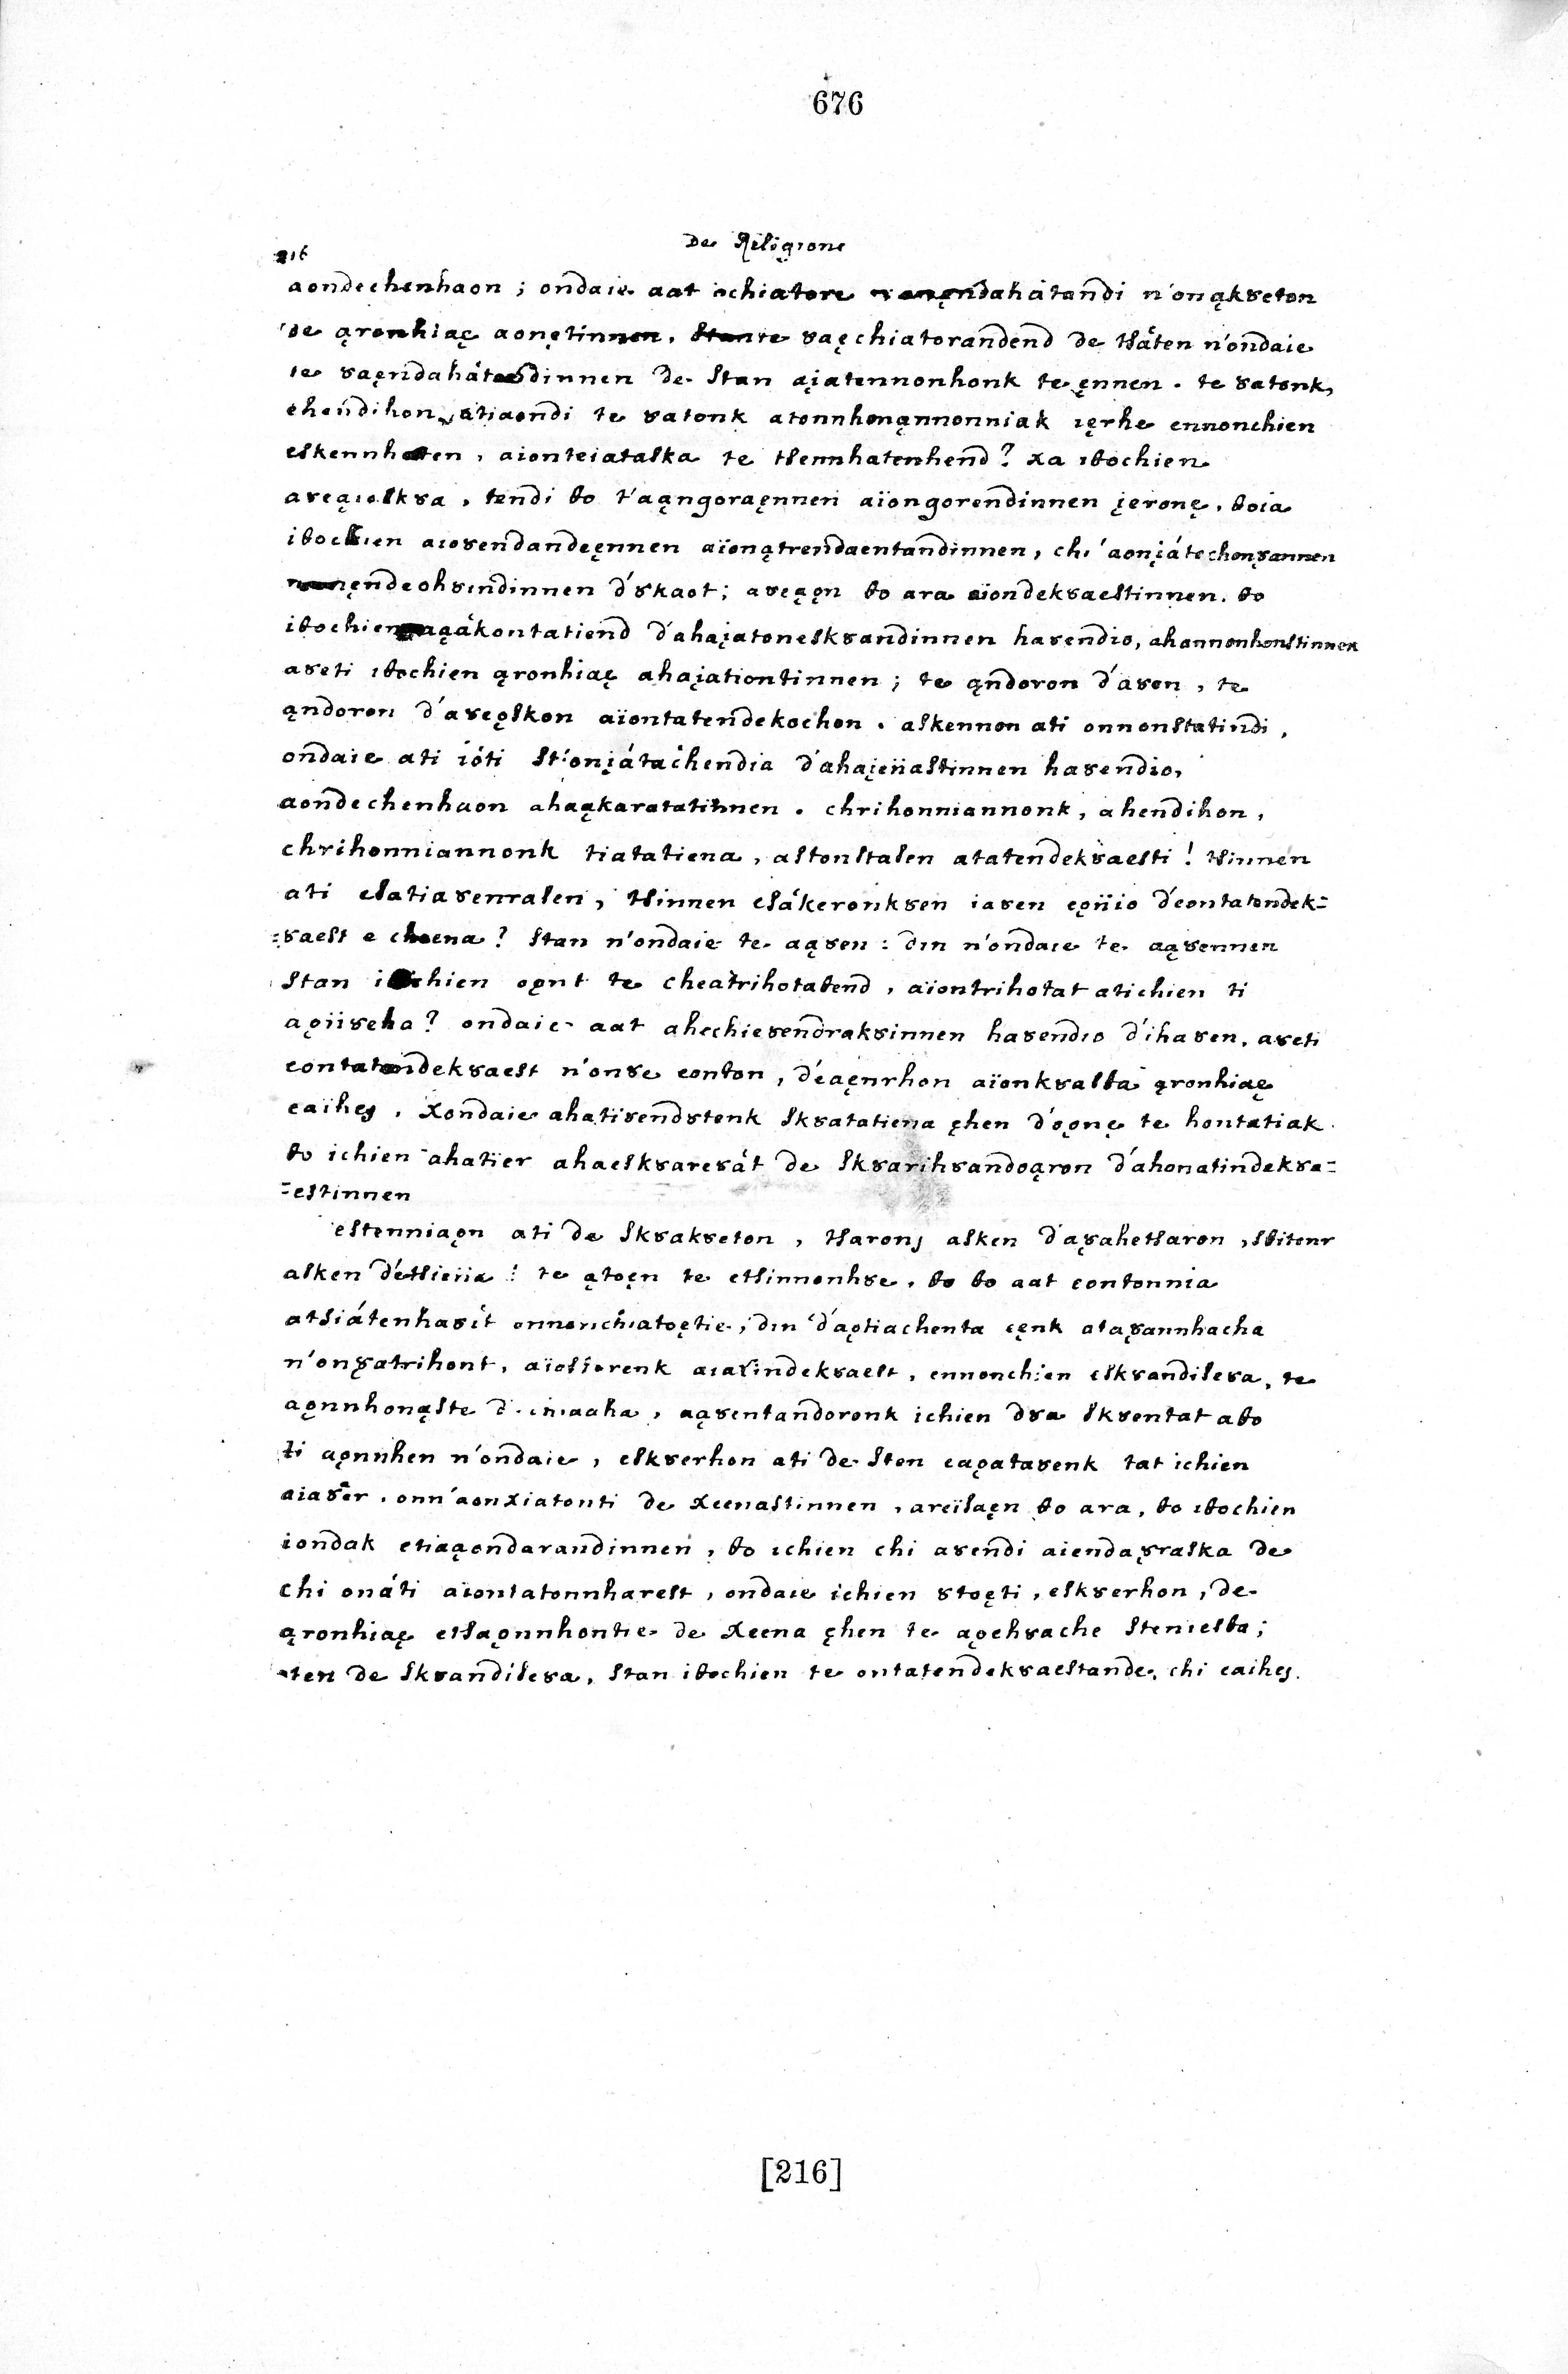 676
216
De Religione
aondechenhaon ; ondaie aat ichiatore ȣanęndahátandi n'onąkȣeton
de ąronhiaę aonętinnen. Stante ȣaęchiatorandend de tsáten n'ondaie
te ȣaęndahátandinnen de stan aįatennonhonk te ęnnen. te ȣatonk,
ehendihon, atiaondi te ȣatonk atonnhonąnnonniak ięrhe ennonchien
eskennhaten, aionteiataska te tsennhatenhend? xa iθochien
aȣeąioskȣa, tendi θo t'aąngoraęnnen aïongorendinnen įeronę, θoia
iθochien aioȣendandeęnnen aïonątrendaentandinnen, chi 'aonįátechonȣannen
ęndeohȣindinnen d'ȣkaot; aȣeąęn θo ara aiondekȣaestinnen. θo
iθochien aąákontatiend d'ahaįatoneskȣandinnen haȣendio, ahannonhonstinnen
aȣeti iθochien ąronhiaę ahaįationtinnen; te ąndoron d'aȣen, te
ąndoron d'aȣeǫskon aïontatendekochon. askennon ati onnonstatindi,
ondaie ati ióti st'onįátachendia d'ahaįeiiastinnen haȣendio,
aondechenhaon ahaąkaratatinnen. chrihonniannonk, ahendihon,
chrihonniannonk tiatatiena, astonstasen atatendekȣaesti! tsinnen
ati esatiaȣenrasen, tsinnen esákeronkȣen iaȣen eǫiiio d'eontatendek=
=ȣaest e cheena? stan n'ondaie te aąȣen: din n'ondaie te aąȣennen
stan ichien oǫnt te cheatrihotaθend, aïontrihotat atichien ti
aǫiiȣeha? ondaie aat ahechieȣendrakȣinnen haȣendio d'ihaȣen, aȣeti
eontatendekȣaest n'onȣe eonton, d'eaęnrhon aïonkȣasθa ąronhiaę
eaïheȷ. xondaie ahatiȣendȣtenk skȣatatiena ęhen d'oǫnę te hontatiak.
θo ichien ahatïer ahaeskȣareȣát de skȣarihȣandoąron d'ahonatindekȣa=
=estinnen
estenniaǫn ati de skȣakȣeton, tsaronȷ asken d'aȣahetsaron, sθitenr
asken d'etsieiia! te ątoęn te etsinnonhȣe, θo θo aat eontonnia
atsiátenhaȣit onnonchiatoętie; din d'aǫtiachenta ięnk ataȣannhacha
n'onȣatrihont, aïosierenk aiaȣindekȣaest, ennonchien eskȣandiseȣa, te
aǫnnhonąste aąȣentandoronk ichien dȣa skȣentat aθo
ti aǫnnhen n'ondaie, eskȣerhon ati de sten eaǫataȣenk tat ichien
aiaȣer. onn'aonxiatonti de xeenastinnen, areïsaęn θo ara, θo iθochien
iondak etiaąondarandinnen, θo ichien chi aȣendi aiendaȣraska de
chi onáti aiontatonnharest, ondaie ichien ȣtoęti, eskȣerhon, de
ąronhiaę etsaǫnnhontie de xeena ęhen te aǫehȣache steniesθa;
ten de skȣandiseȣa, stan iθochien te ontatendekȣaestande, chi eaiheȷ.
[216]